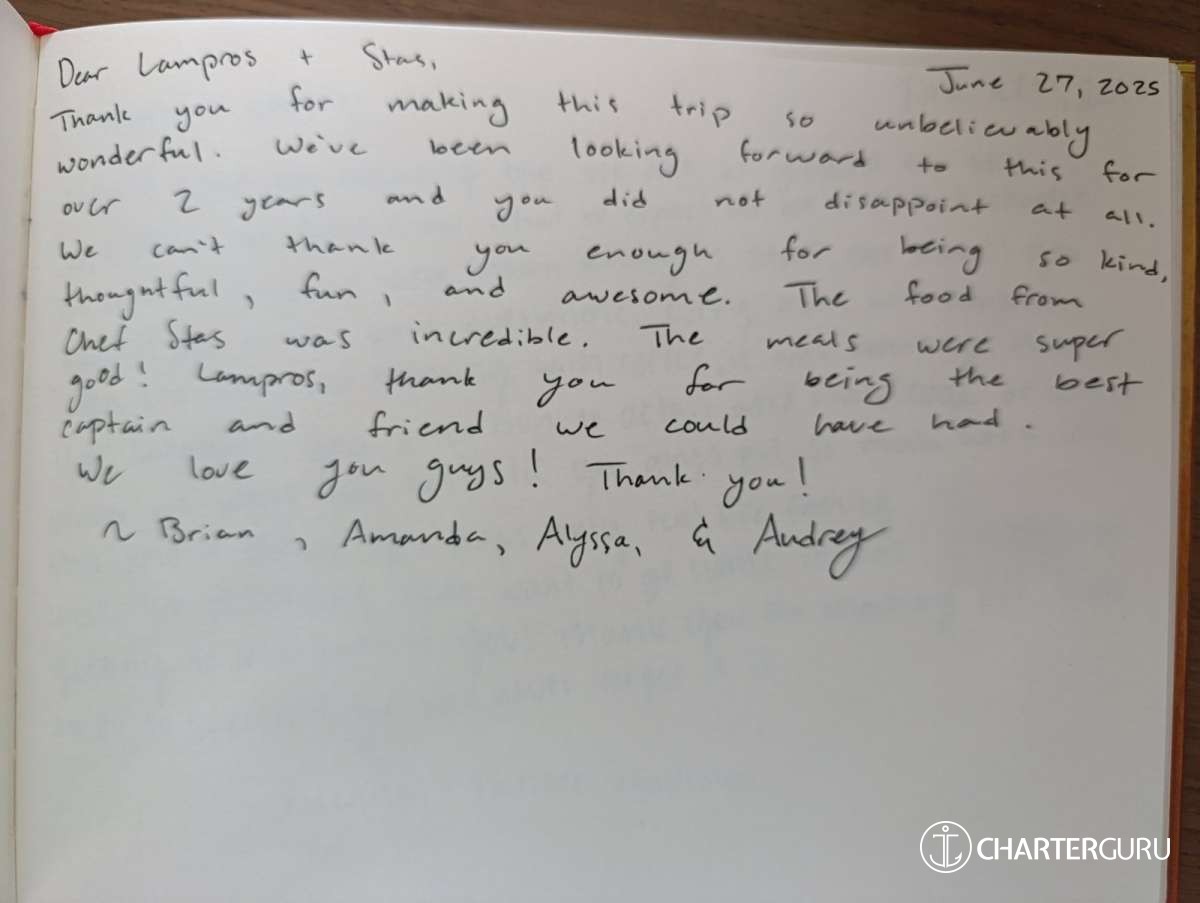 Dear Lampros + Stas,
June 27, 2025
Thank you for making this trip so unbelievably
wonderful. We've been looking forward to this for
over 2 years and you did not disappoint at all.
We can't thank you enough for being so kind,
thoughtful, fun, and awesome. The food from
Chef Stas was incredible. The meals were super
good! Lampros, thank you for being the best
captain and friend we could have had.
We love you guys! Thank you!
~ Brian, Amanda, Alyssa, & Audrey
CHARTERGURU